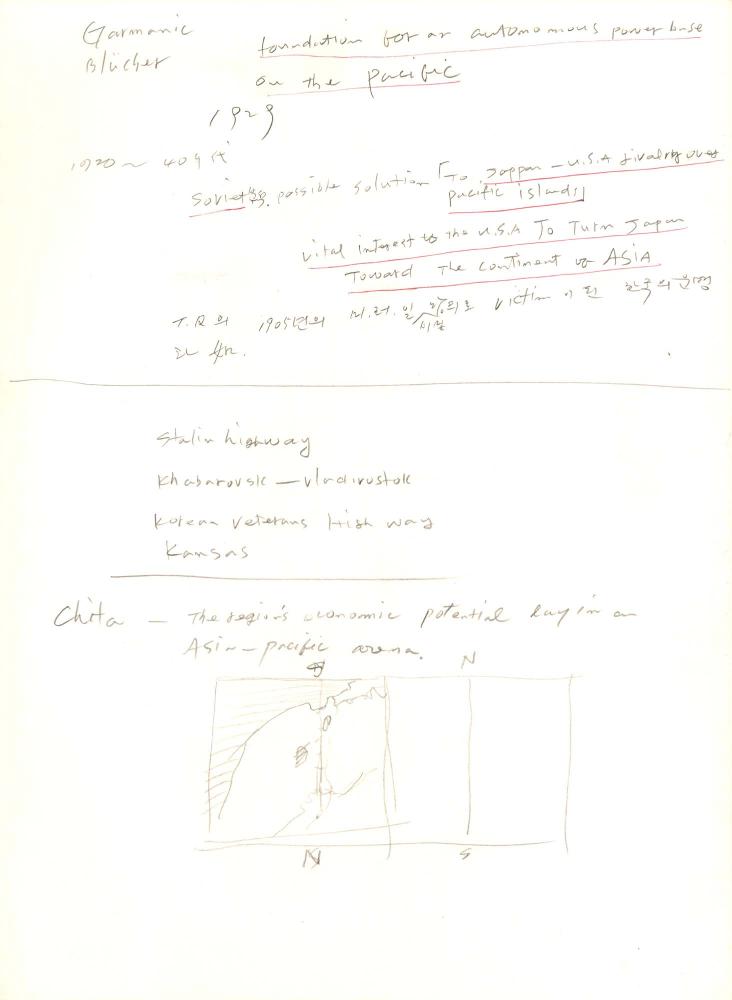 Garmanic
Blücher
foundation for an autonomous power base
on the pacific
1929
1920 ~ 40年代
Soviet possible solution 「To Jappan - U.S.A rivalry over
pacific islands」
vital interest to the U.S.A To Turn Japan
Toward The continent of ASIA
T.R의 1905년의 미.러.일 victim이 된 한국의 운명
Stalin highway
Khabarovsk — Vladivostok
Korean Veterans High way
Kansas
Chita — The region's economic potential lay in an
Asia-pacific arena.
N
N
S